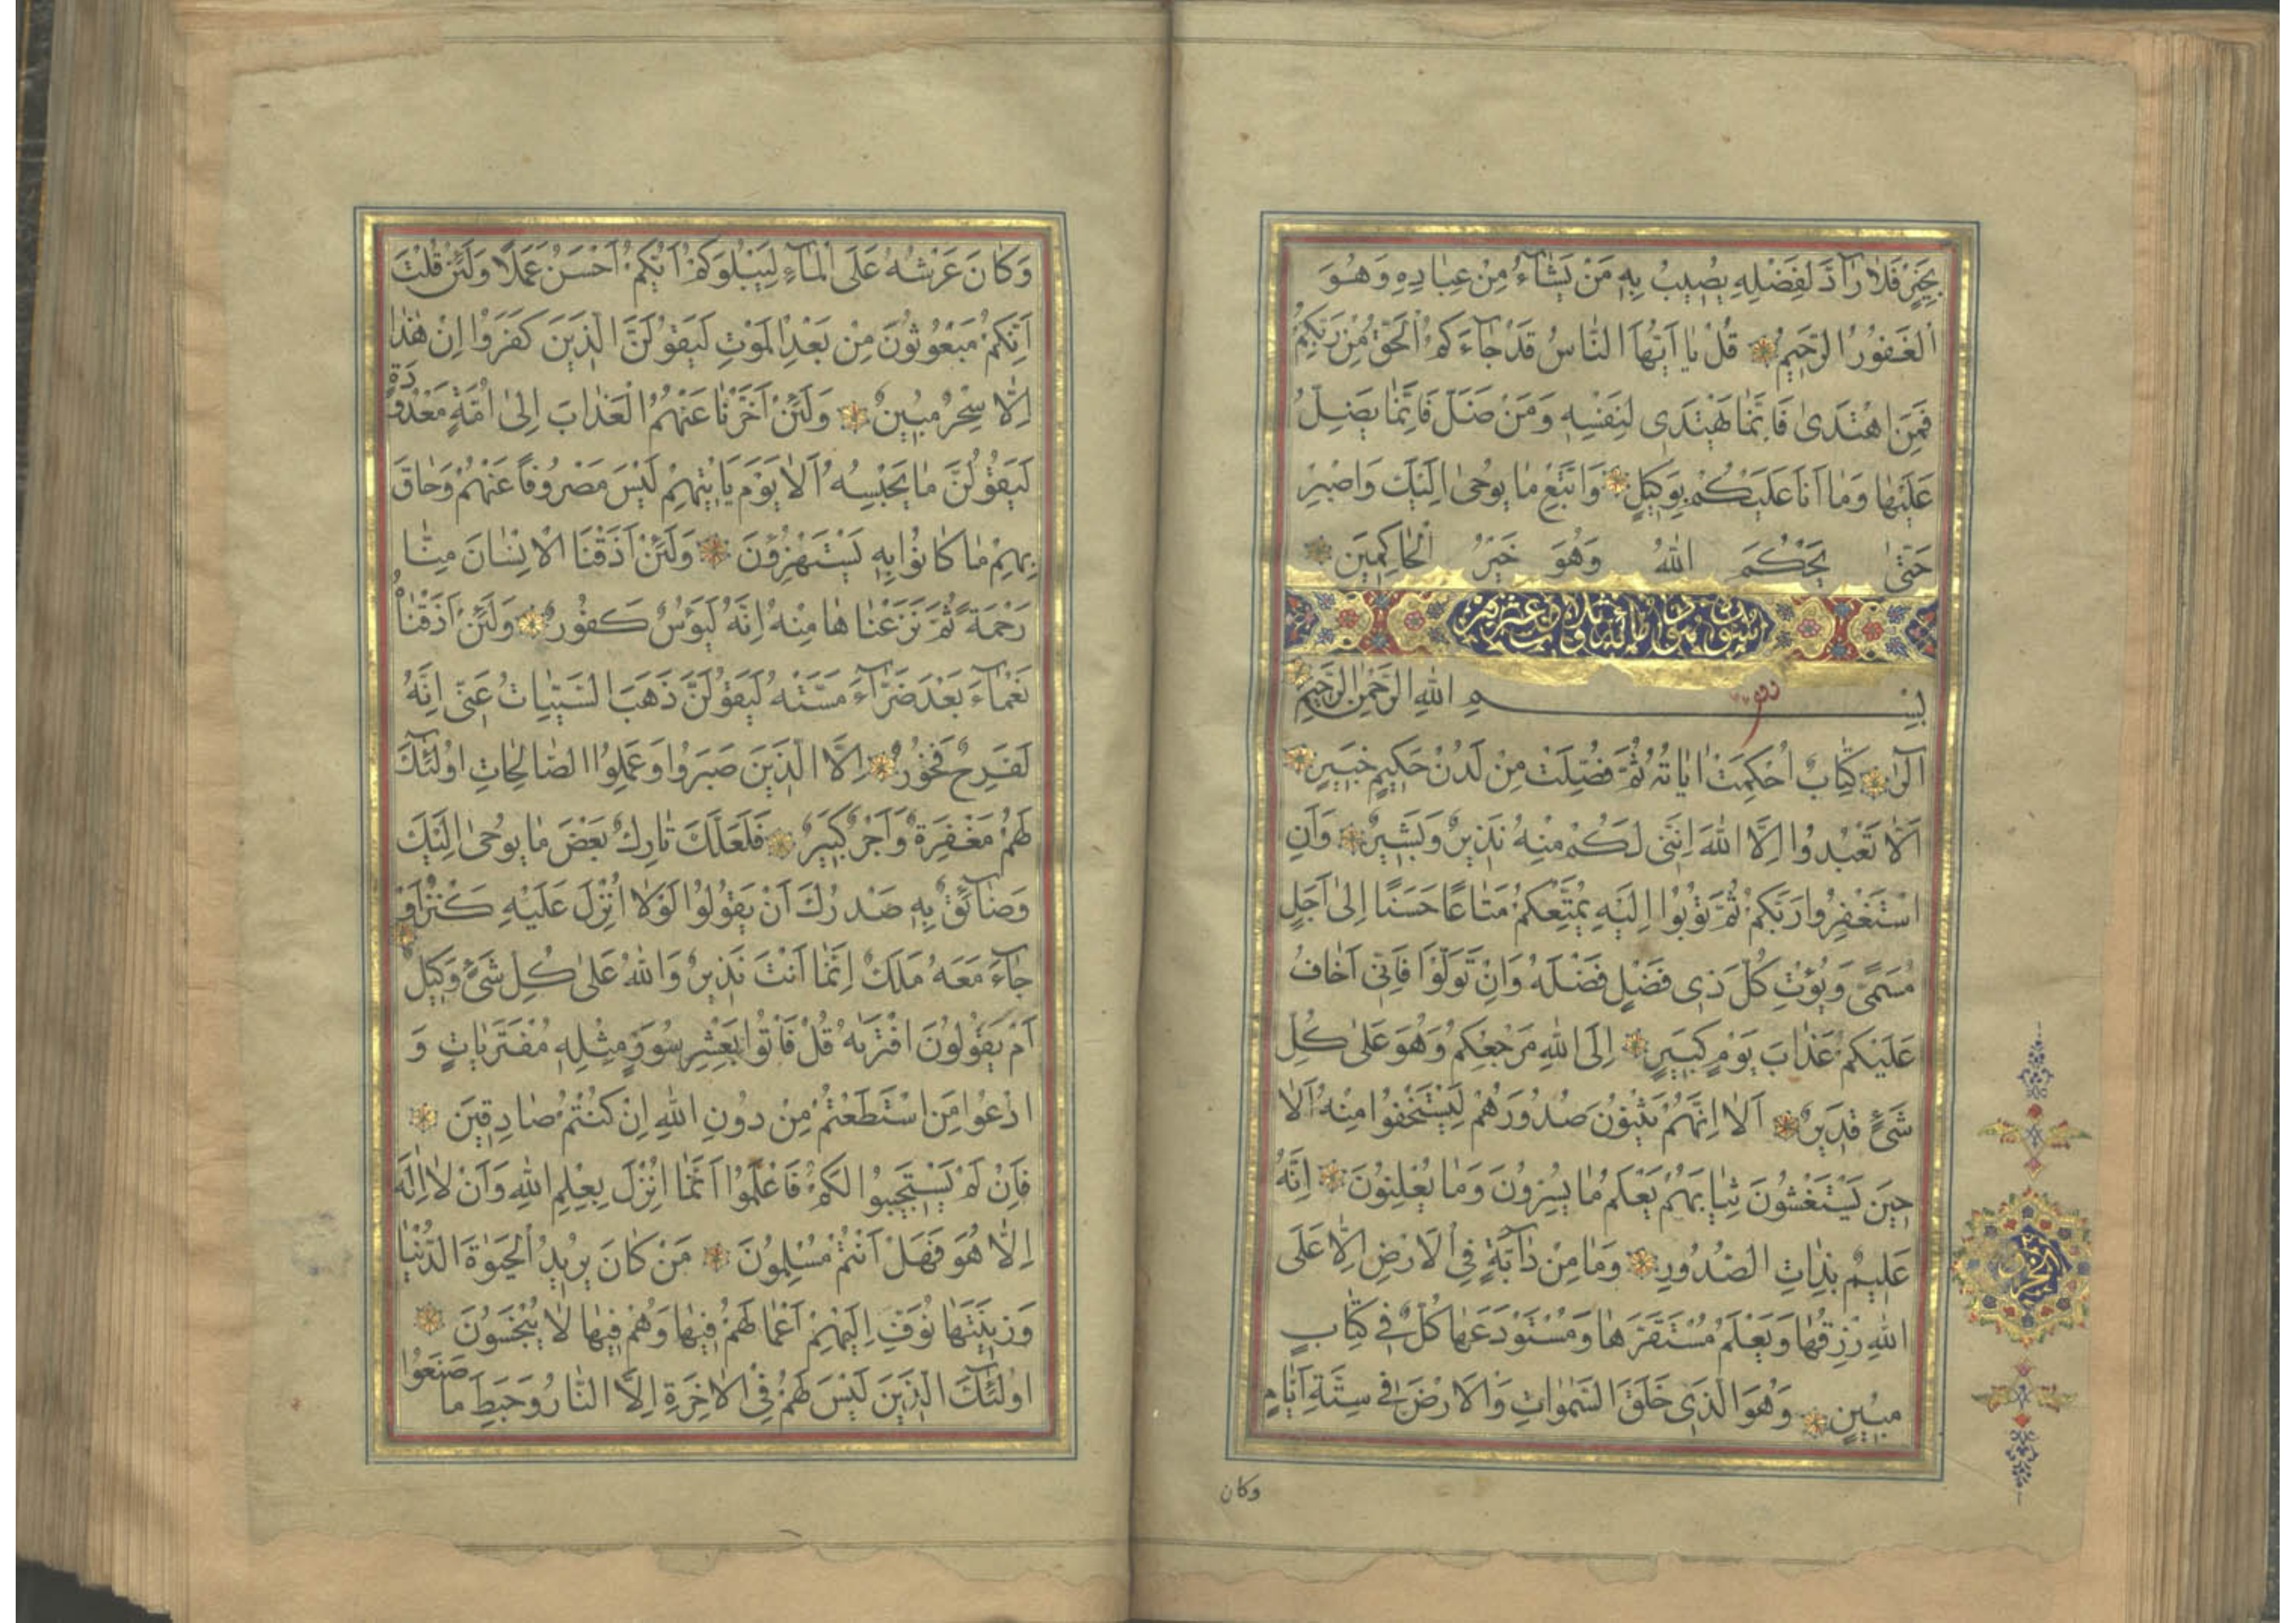 بِخَيْرٍ فَلَا رَآدَّ لِفَضْلِهِ يُصِيبُ بِهِ مَنْ يَشَآءُ مِنْ عِبَادِهِ وَهُوَ
الْغَفُورُ الرَّحِيمُ قُلْ يَا أَيُّهَا النَّاسُ قَدْ جَآءَكُمُ الْحَقُّ مِنْ رَبِّكُمْ
فَمَنِ اهْتَدَىٰ فَإِنَّمَا يَهْتَدِي لِنَفْسِهِ وَمَنْ ضَلَّ فَإِنَّمَا يَضِلُّ
عَلَيْهَا وَمَا أَنَا عَلَيْكُمْ بِوَكِيلٍ وَاتَّبِعْ مَا يُوحَىٰ إِلَيْكَ وَاصْبِرْ
حَتَّىٰ يَحْكُمَ اللهُ وَهُوَ خَيْرُ الْحَاكِمِينَ
بِسْمِ اللهِ الرَّحْمٰنِ الرَّحِيمِ
الٓرٰ كِتَابٌ أُحْكِمَتْ اٰيَاتُهُ ثُمَّ فُصِّلَتْ مِنْ لَدُنْ حَكِيمٍ خَبِيرٍ
أَلَّا تَعْبُدُوا إِلَّا اللهَ إِنَّنِي لَكُمْ مِنْهُ نَذِيرٌ وَبَشِيرٌ وَأَنِ
اسْتَغْفِرُوا رَبَّكُمْ ثُمَّ تُوبُوا إِلَيْهِ يُمَتِّعْكُمْ مَتَاعًا حَسَنًا إِلَىٰ أَجَلٍ
مُسَمًّى وَيُؤْتِ كُلَّ ذِي فَضْلٍ فَضْلَهُ وَإِنْ تَوَلَّوْا فَإِنِّي أَخَافُ
عَلَيْكُمْ عَذَابَ يَوْمٍ كَبِيرٍ إِلَى اللهِ مَرْجِعُكُمْ وَهُوَ عَلَىٰ كُلِّ
شَيْءٍ قَدِيرٌ أَلَا إِنَّهُمْ يَثْنُونَ صُدُورَهُمْ لِيَسْتَخْفُوا مِنْهُ أَلَا
حِينَ يَسْتَغْشُونَ ثِيَابَهُمْ يَعْلَمُ مَا يُسِرُّونَ وَمَا يُعْلِنُونَ إِنَّهُ
عَلِيمٌ بِذَاتِ الصُّدُورِ وَمَا مِنْ دَآبَّةٍ فِي الْأَرْضِ إِلَّا عَلَى
اللهِ رِزْقُهَا وَيَعْلَمُ مُسْتَقَرَّهَا وَمُسْتَوْدَعَهَا كُلٌّ فِي كِتَابٍ
مُبِينٍ وَهُوَ الَّذِي خَلَقَ السَّمٰوَاتِ وَالْأَرْضَ فِي سِتَّةِ أَيَّامٍ
وكان
وَكَانَ عَرْشُهُ عَلَى الْمَآءِ لِيَبْلُوَكُمْ أَيُّكُمْ أَحْسَنُ عَمَلًا وَلَئِنْ قُلْتَ
إِنَّكُمْ مَبْعُوثُونَ مِنْ بَعْدِ الْمَوْتِ لَيَقُولَنَّ الَّذِينَ كَفَرُوا إِنْ هٰذَا
إِلَّا سِحْرٌ مُبِينٌ وَلَئِنْ أَخَّرْنَا عَنْهُمُ الْعَذَابَ إِلَىٰ أُمَّةٍ مَعْدُودَةٍ
لَيَقُولُنَّ مَا يَحْبِسُهُ أَلَا يَوْمَ يَأْتِيهِمْ لَيْسَ مَصْرُوفًا عَنْهُمْ وَحَاقَ
بِهِمْ مَا كَانُوا بِهِ يَسْتَهْزِؤُنَ وَلَئِنْ أَذَقْنَا الْإِنْسَانَ مِنَّا
رَحْمَةً ثُمَّ نَزَعْنَاهَا مِنْهُ إِنَّهُ لَيَؤُسٌ كَفُورٌ وَلَئِنْ أَذَقْنَاهُ
نَعْمَآءَ بَعْدَ ضَرَّآءَ مَسَّتْهُ لَيَقُولَنَّ ذَهَبَ السَّيِّئَاتُ عَنِّي إِنَّهُ
لَفَرِحٌ فَخُورٌ إِلَّا الَّذِينَ صَبَرُوا وَعَمِلُوا الصَّالِحَاتِ أُولٰئِكَ
لَهُمْ مَغْفِرَةٌ وَأَجْرٌ كَبِيرٌ فَلَعَلَّكَ تَارِكٌ بَعْضَ مَا يُوحَىٰ إِلَيْكَ
وَضَآئِقٌ بِهِ صَدْرُكَ أَنْ يَقُولُوا لَوْلَا أُنْزِلَ عَلَيْهِ كَنْزٌ أَوْ
جَآءَ مَعَهُ مَلَكٌ إِنَّمَا أَنْتَ نَذِيرٌ وَاللهُ عَلَىٰ كُلِّ شَيْءٍ وَكِيلٌ
أَمْ يَقُولُونَ افْتَرٰيهُ قُلْ فَأْتُوا بِعَشْرِ سُوَرٍ مِثْلِهِ مُفْتَرَيَاتٍ وَ
ادْعُوا مَنِ اسْتَطَعْتُمْ مِنْ دُونِ اللهِ إِنْ كُنْتُمْ صَادِقِينَ
فَإِنْ لَمْ يَسْتَجِيبُوا لَكُمْ فَاعْلَمُوا أَنَّمَا أُنْزِلَ بِعِلْمِ اللهِ وَأَنْ لَا إِلٰهَ
إِلَّا هُوَ فَهَلْ أَنْتُمْ مُسْلِمُونَ مَنْ كَانَ يُرِيدُ الْحَيٰوةَ الدُّنْيَا
وَزِينَتَهَا نُوَفِّ إِلَيْهِمْ أَعْمَالَهُمْ فِيهَا وَهُمْ فِيهَا لَا يُبْخَسُونَ
أُولٰئِكَ الَّذِينَ لَيْسَ لَهُمْ فِي الْاٰخِرَةِ إِلَّا النَّارُ وَحَبِطَ مَا صَنَعُوا